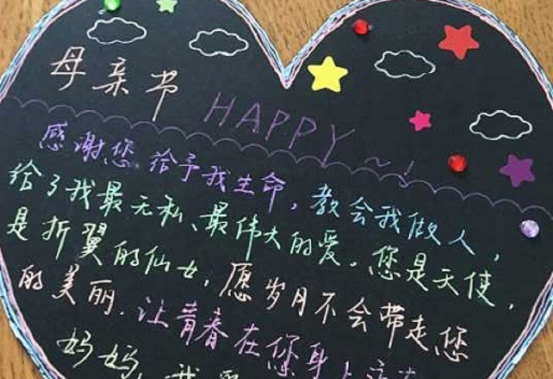 母亲节 HAPPY~!
感谢您给予我生命，教会我做人，
给了我最无私、最伟大的爱。您是天使，
是折翼的仙女，愿岁月不会带走您
的美丽.让青春在您身上
妈妈,我